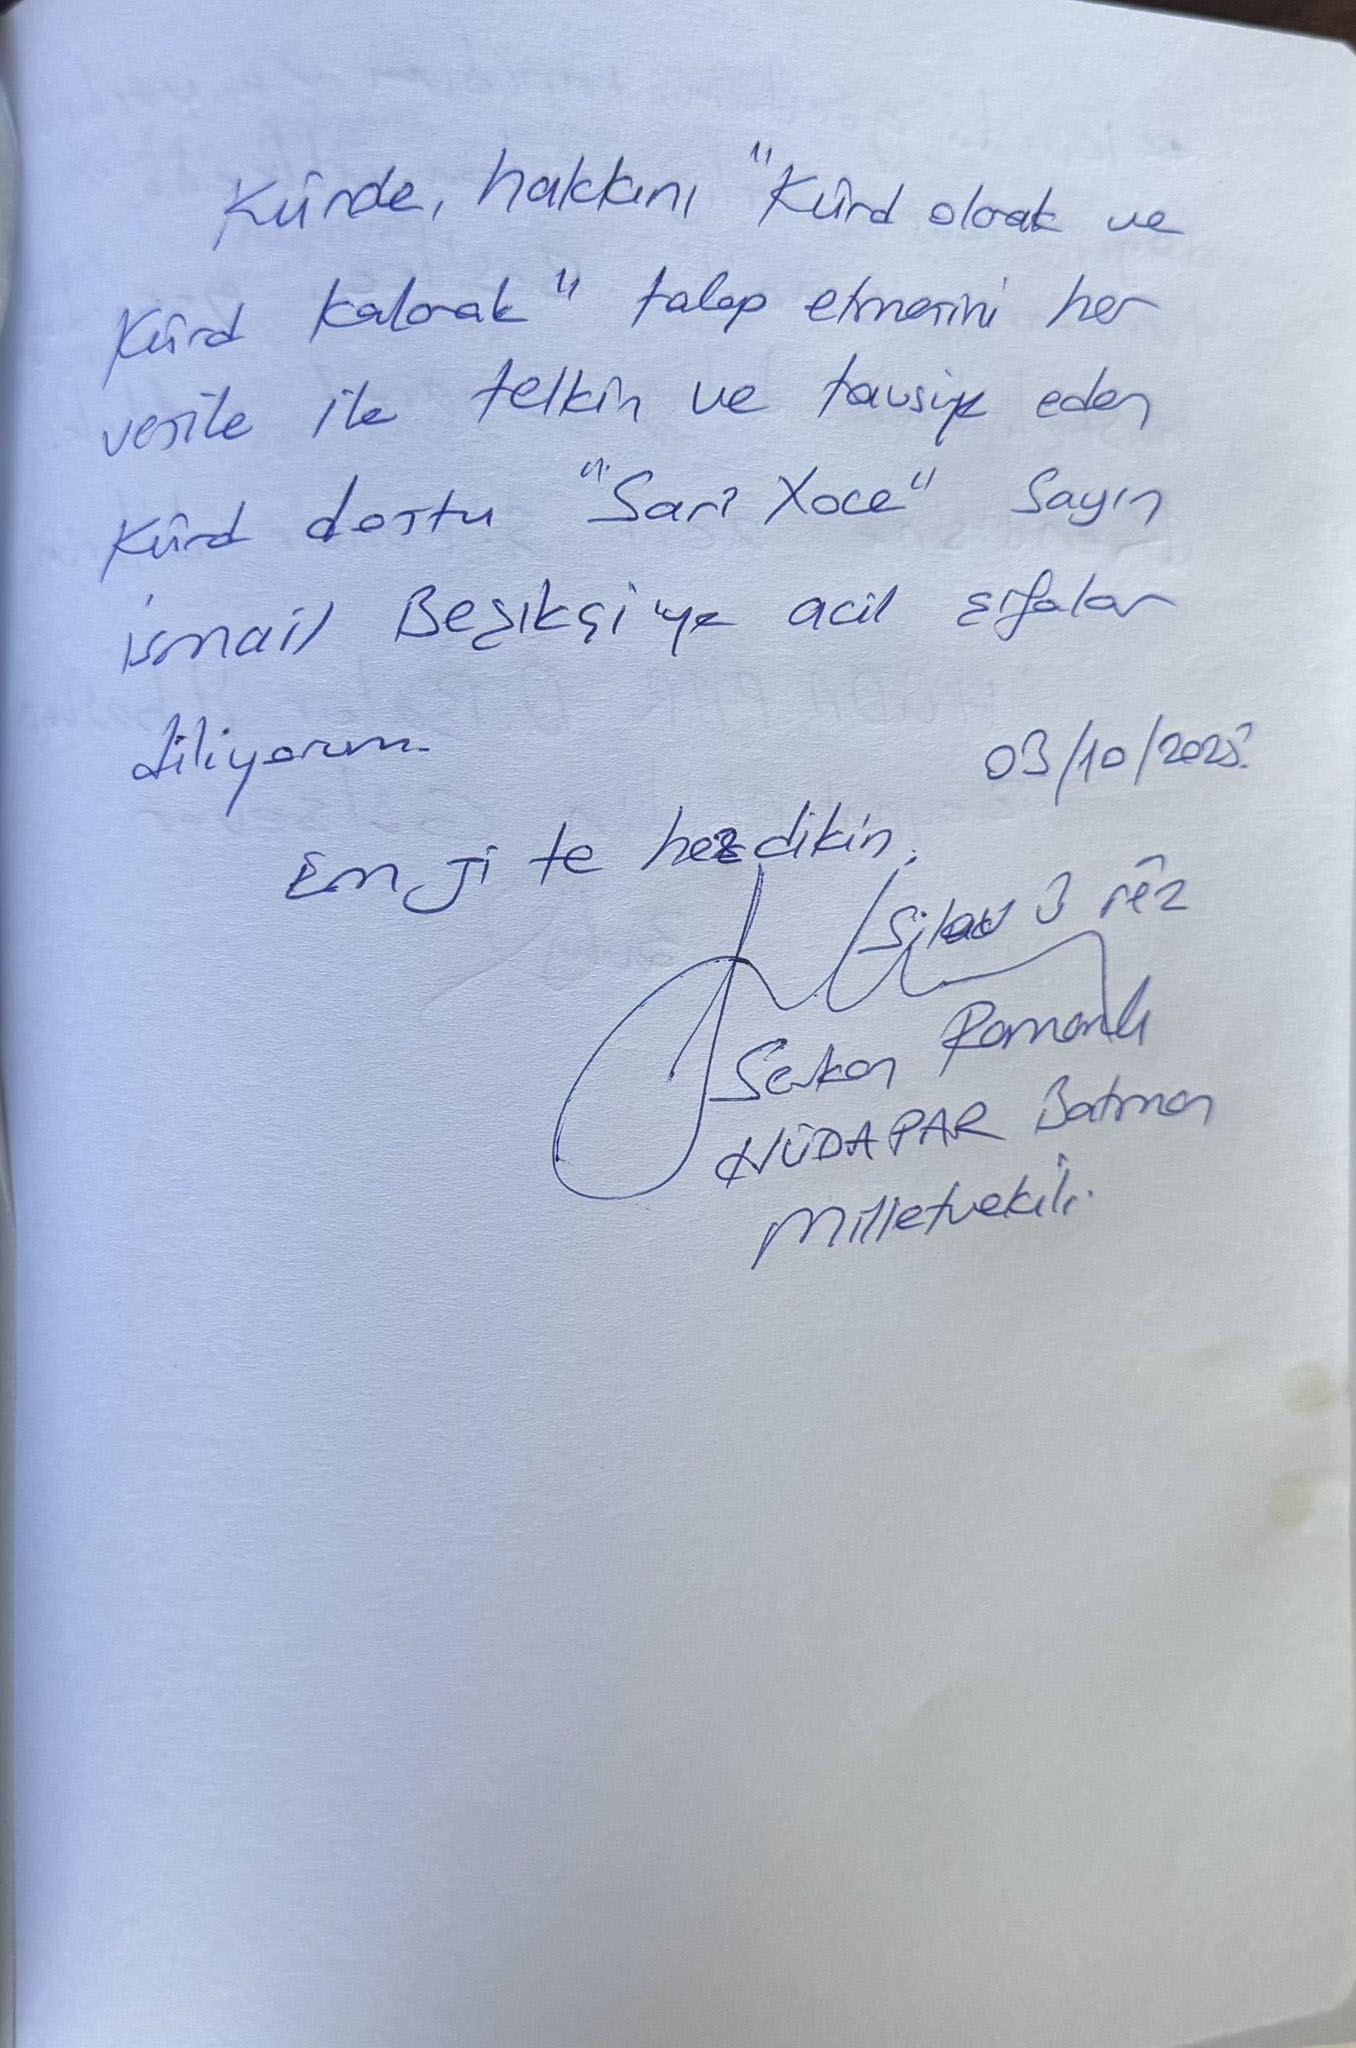 Kûrde, hakkını "Kûrd olarak ve
Kûrd kalarak" talep etmesini her
vesile ile telkin ve tavsiye eden
Kûrd dostu "Sarî Xoce" Sayın
İsmail Beşikçi'ye acil şifalar
diliyorum.
03/10/2025
Em ji te hezdikin.
Silav û rêz
Serkan Ramanlı
HÜDAPAR Batman
Milletvekili.